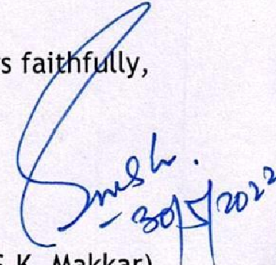 s faithfully,
30/5/2022
K. Makkar)